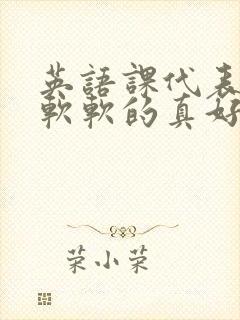 英語課代表
軟軟的真好
荣小荣